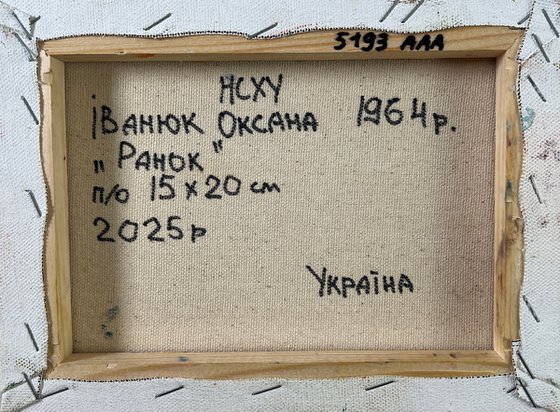 5193 AAA
НСХУ
Іванюк Оксана 1964 р.
„Ранок"
п/о 15 x 20 см
2025р
Україна